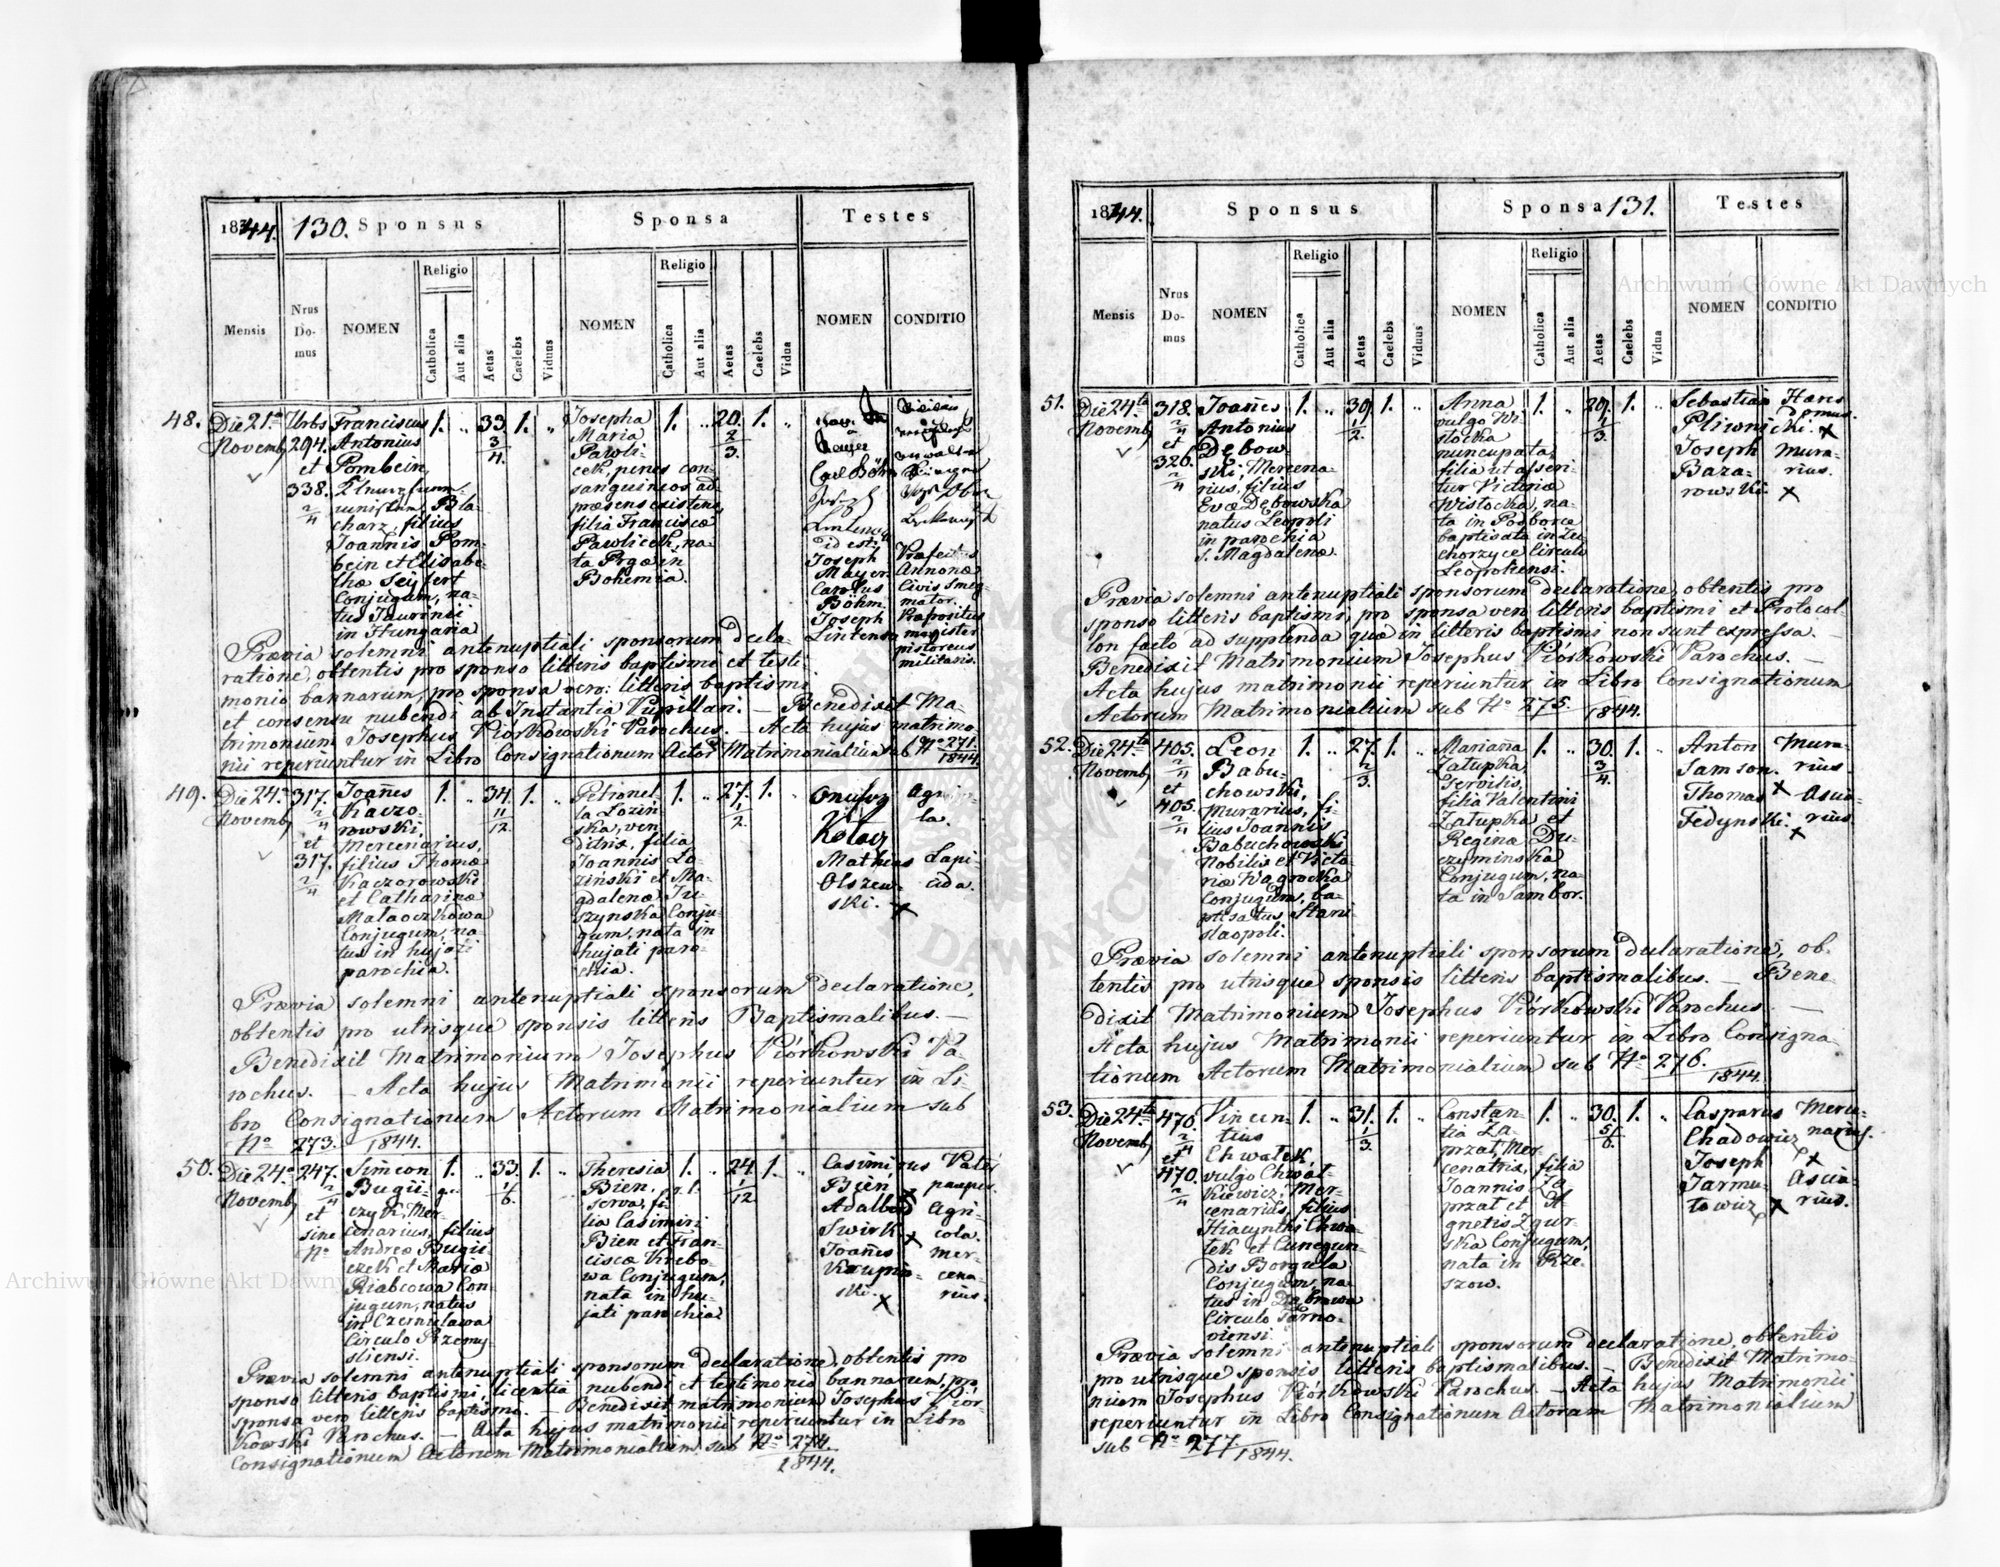 1844. 130. Sponsus Sponsa Testes
Mensis Nrus Do- mus NOMEN Religio Catholica Aut alia Aetas Caelebs Viduus NOMEN Religio Catholica Aut alia Aetas Caelebs Vidua NOMEN CONDITIO
48. Die 21a
Novemb
Urbs
294.
et
338.
2/4
Franciscus
Antonius
Pombein,
filius
Joannis Pom-
bein et Elisabe-
thæ Seyfert
Conjugum, na-
tus Jaurinii
in Hungaria
1. „ 33 3/4. 1. „
Josepha
Maria
Pawli-
cek, penes con-
sanguineos ad-
præsens existens,
filia Franciscæ
Pawlicek, na-
ta Prgæ in
Bohemia.
1. „ 20. 2/3. 1. „
Carl Böhm
Joseph
id est:
Joseph
Mayer
Carolus
Böhm.
Joseph
Lintener
Præfectus
Annonæ
Civis Smeg-
mator.
Præpositus
magister
pistoreus
militaris.
Prævia solemni antenuptiali sponsorum decla-
ratione, obtentis pro sponso litteris baptismi et testi-
monio bannorum, pro sponsa vero: litteris baptismi
et consensu nubendi ab Instantia Pupillari. — Benedixit Ma-
trimonium Josephus Piórkowski Parochus. — Acta hujus matrimo-
nii reperiuntur in Libro Consignationum Actor. Matrimonialium sub No 271.
1844.
49. Die 24a
Novemb
317.
2/4
et
317.
2/4
Joañes
Kaczo-
rowski,
Mercenarius,
filius Thomæ
Kaczorowski
et Catharinæ
Małaoczkowa
Conjugum, na-
tus in hujati
parochia.
1. „ 34. 11/12. 1. „
Petronel-
la Loziń-
ska, ven-
ditrix, filia
Joannis Lo-
ziński et Ma-
gdalenæ Tu-
szynska Conju-
gum, nata in
hujati paro-
chia.
1. „ 27. 1/2. 1. „
Onufry
Kołacz
Matheus
Olszew-
ski. x
Agrico-
la.
Lapi-
cida.
Prævia solemni antenuptiali sponsorum declaratione,
obtentis pro utrisque sponsis litteris Baptismalibus. —
Benedixit Matrimonium Josephus Piórkowski Pa-
rochus. — Acta hujus Matrimonii reperiuntur in Li-
bro Consignationum Actorum Matrimonialium sub
No 273. 1844.
50. Die 24a
Novemb
247.
2/4
et
sine
No
Simeon
Bugie-
czyk, Mer-
cenarius, filius
Andreæ Bugie-
czek et Mariæ
Riabcowa Con-
jugum, natus
in Czernielawa
Circulo Przemy-
sliensi.
1. „ 33. 1/6. 1. „
Theresia
Bien,
serva, fi-
lia Casimiri
Bien et Fran-
ciscæ Krebo-
wa Conjugum,
nata in hu-
jati parochia
1. „ 24. 1/12 1. „
Casimirus
Bien x
Adalbert
Swirk x
Joañes
Krupni-
ski. x
Pater
pauper.
Agri-
cola.
mer-
cena-
rius.
Prævia solemni antenuptiali sponsorum declaratione, obtentis pro
sponso litteris baptismi, licentia nubendi et testimonio bannorum, pro
sponsa vero litteris baptismi. — Benedixit matrimonium Josephus Piór-
kowski Parochus. — Acta hujus matrimonii reperiuntur in Libro
Consignationum Actorum Matrimonialium sub No 274.
1844.
1844. Sponsus Sponsa 131. Testes
Mensis Nrus Do- mus NOMEN Religio Catholica Aut alia Aetas Caelebs Viduus NOMEN Religio Catholica Aut alia Aetas Caelebs Vidua NOMEN CONDITIO
51. Die 24ta
Novemb
318.
2/4
et
326.
2/4
Joañes
Antonius
Debow-
ski, Mercena-
rius, filius
Evæ Dębowska
natus Leopoli
in parochia
S. Magdalenæ.
1. „ 39. 1/2. 1. „
Anna
vulgo Wi-
stocka
nuncupata,
filia ut asseri-
tur Victoriæ
Wistocka, na-
ta in Podborce
baptisata in Ze-
chorzyce Circulo
Leopoliensi.
1. „ 29. 1/3. 1. „
Sebastian
Pliwni-
cki. x
Joseph
Baza-
rowski x
Hæres
Domus.
Mura-
rius.
Prævia solemni antenuptiali sponsorum declaratione, obtentis pro
sponso litteris baptismi, pro sponsa vero litteris baptismi et Protocol-
lon facto ad supplenda quæ in litteris baptismi non sunt expressa. —
Benedixit Matrimonium Josephus Piórkowski Parochus. —
Acta hujus matrimonii reperiuntur in Libro Consignationum
Actorum Matrimonialium sub No 275. 1844.
52. Die 24ta
Novemb
405.
2/4
et
405.
2/4
Leon
Babu-
chowski,
Murarius, fi-
lius Joannis
Babuchowski
Nobilis et Victo-
riæ Wagrocka
Conjugum, ba-
ptisatus Stani-
slaopoli.
1. „ 27. 2/3. 1. „
Mariaña
Załupka,
Servilis,
filia Valentini
Załupka et
Reginæ Du-
czyminska
Conjugum, na-
ta in Sambor.
1. „ 30. 3/4. 1. „
Anton
Samson. x
Thomas
Fedynski. x
Mura-
rius.
Ascia-
rius.
Prævia solemni antenuptiali sponsorum declaratione, ob-
tentis pro utrisque sponsis litteris baptismalibus. — Bene-
dixit Matrimonium Josephus Piórkowski Parochus. —
Acta hujus Matrimonii reperiuntur in Libro Consigna-
tionum Actorum Matrimonialium sub No 276.
1844.
53. Die 24ta
Novemb
470.
2/4
et
470.
2/4
Vincen-
tius
Chwałek
vulgo Chwał-
kiewicz, Mer-
cenarius, filius
Hiacynthi Chwa-
łek et Cunegun-
dis Borgula
Conjugum, na-
tus in Dabrowa
Circulo Tarno-
viensi.
1. „ 31. 1/3. 1. „
Constan-
tia Za-
przat, Mer-
cenatrix, filia
Joannis Za-
przat et A-
gnetis Zgur-
ska Conjugum,
nata in Rze-
szow.
1. „ 30. 5/6. 1. „
Casparus
Chadowicz x
Joseph
Jarmu-
towicz x
Merce-
narius.
Ascia-
rius.
Prævia solemni antenuptiali sponsorum declaratione, obtentis
pro utrisque sponsis litteris baptismalibus. — Benedixit Matrimo-
nium Josephus Piórkowski Parochus. — Acta hujus Matrimonii
reperiuntur in Libro Consignationum Actorum Matrimonialium
sub No 277. 1844.
Archiwum Główne Akt Dawnych
Archiwum Główne Akt Dawnych